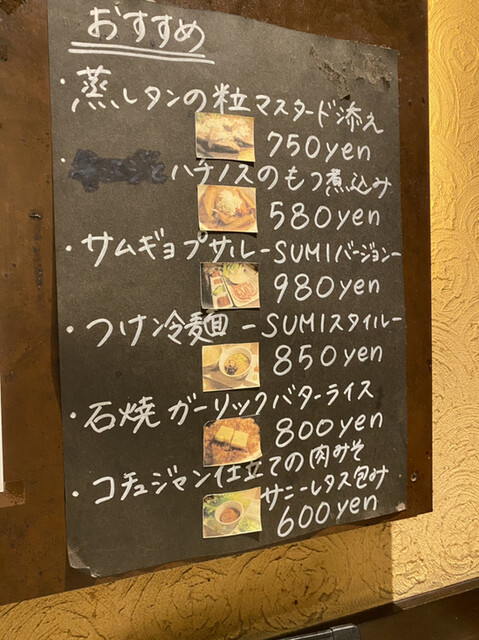 おすすめ
・蒸しタンの粒マスタード添え
750yen
・ハチノスのもつ煮込み
580yen
・サムギョプサル-SUMIバージョン-
980yen
・つけン冷麺-SUMIスタイル-
850yen
・石焼ガーリックバターライス
800yen
・コチュジャン仕立ての肉みそ
サニーレタス包み
600yen